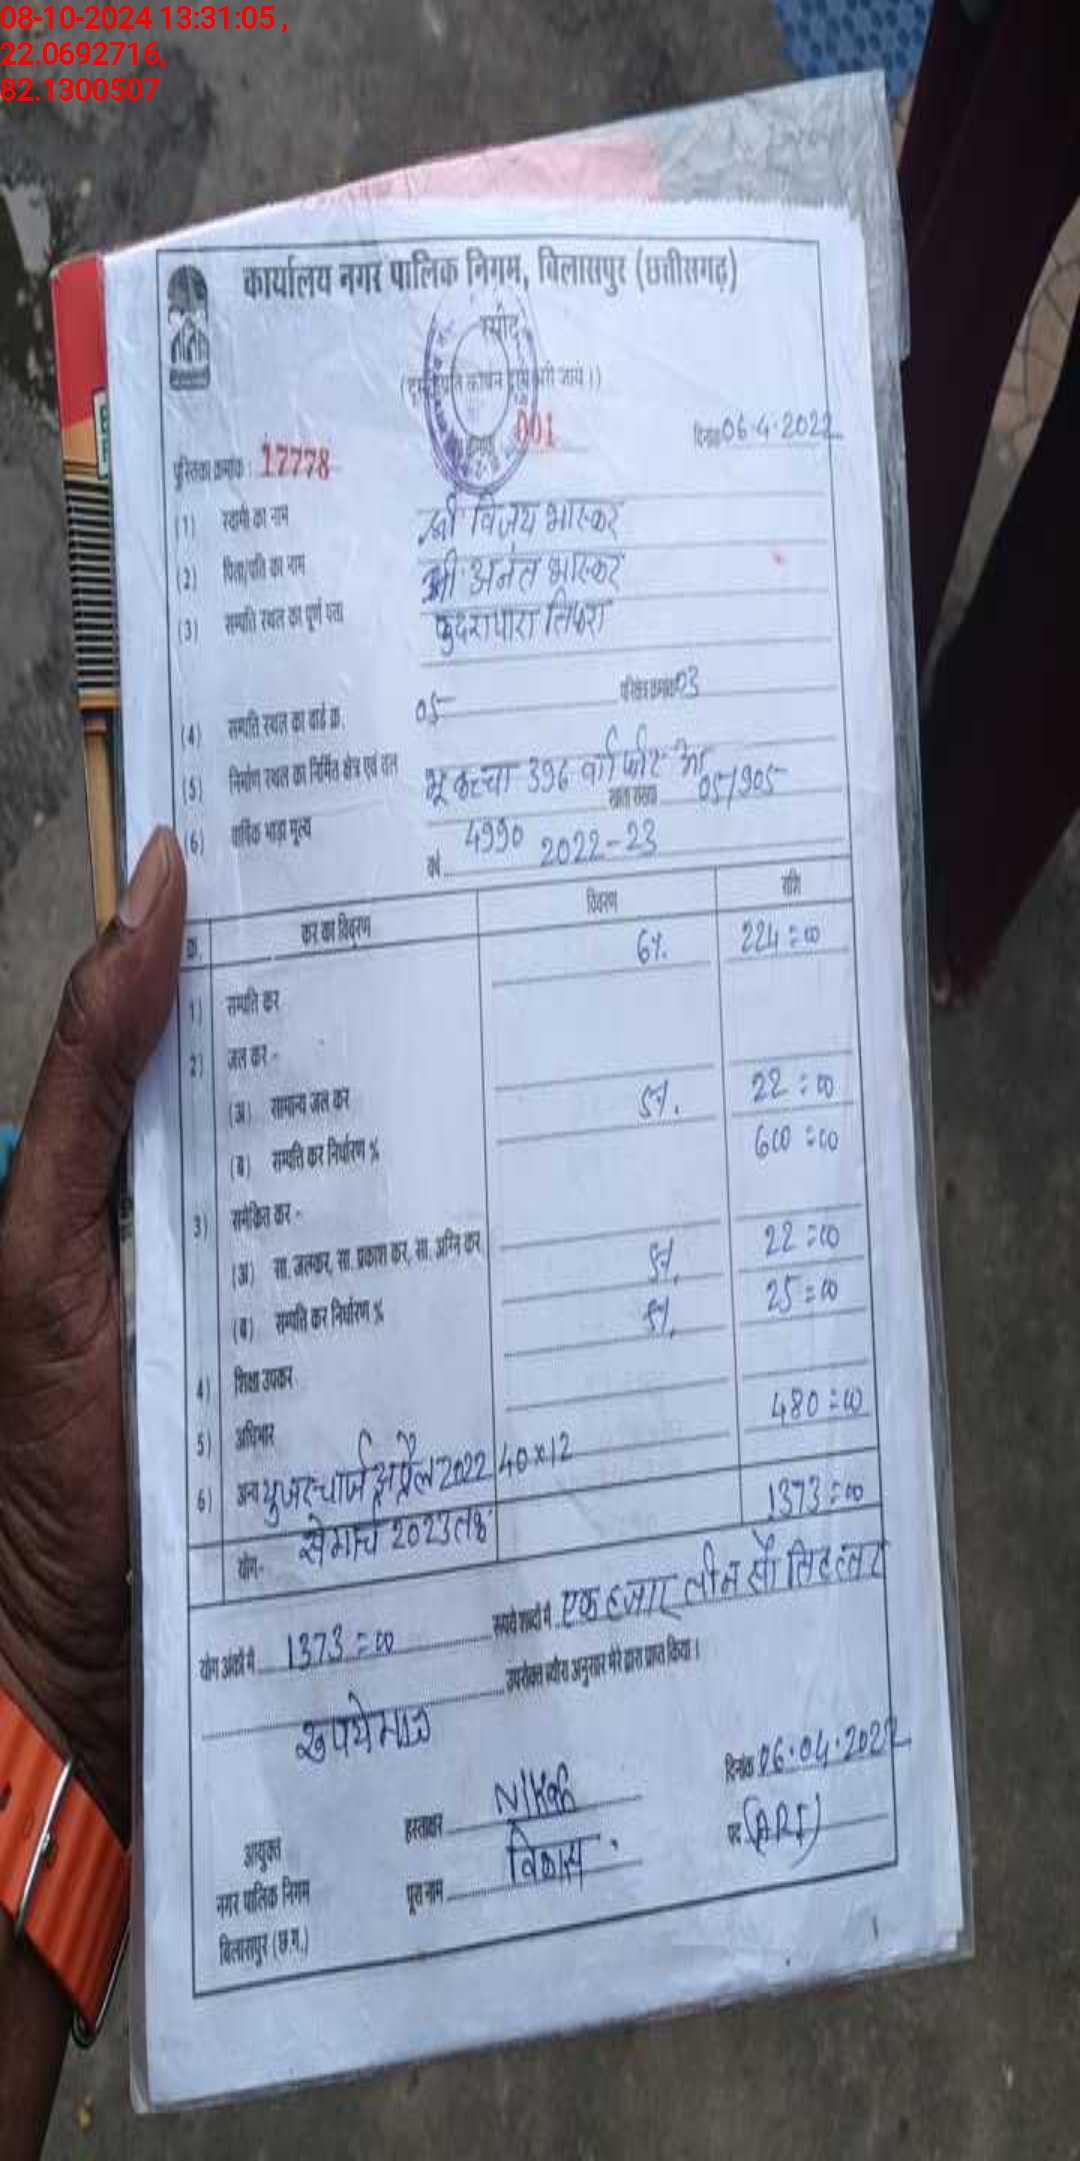 08-10-2024 13:31:05 ,
22.0692716,
82.1300507
कार्यालय नगर पालिक निगम, बिलासपुर (छत्तीसगढ़)
रसीद
पुस्तिका क्रमांक : 17778 001 दिनांक 06.4.2022
(1) स्वामी का नाम श्री विजय भास्कर
(2) पिता/पति का नाम श्री अनंत भास्कर
(3) सम्पति स्थल का पूर्ण पता कुदरापारा तिफरा
(4) सम्पति स्थल का वार्ड क्र. 05 परिक्षेत्र क्रमांक 03
(5) निर्माण स्थल का निर्मित क्षेत्र एवं तल भू कच्चा 396 वर्ग फीट
खाता संख्या 05/905
(6) वार्षिक भाड़ा मूल्य 4990 वर्ष 2022-23
क्र. कर का विवरण विवरण राशि
1) सम्पति कर 6%. 224=00
2) जल कर -
(अ) सामान्य जल कर
(ब) सम्पति कर निर्धारण % 5%. 22=00
3) समेकित कर - 600=00
(अ) सा. जलकर, सा. प्रकाश कर, सा. अग्नि कर
(ब) सम्पति कर निर्धारण % 5%. 22=00
4) शिक्षा उपकर 5%. 25=00
5) अधिभार
6) अन्य यूजर चार्ज अप्रैल 2022 40×12 480=00
से मार्च 2023 तक
योग- 1373=00
योग अंकों में 1373=00 रूपये शब्दों में एक हजार तीन सौ तिहत्तर
रूपये मात्र उपरोक्त ब्यौरा अनुसार मेरे द्वारा प्राप्त किया।
हस्ताक्षर दिनांक 06.04.2022
आयुक्त
नगर पालिक निगम पूरा नाम विकास पद (ARI)
बिलासपुर (छ.ग.)